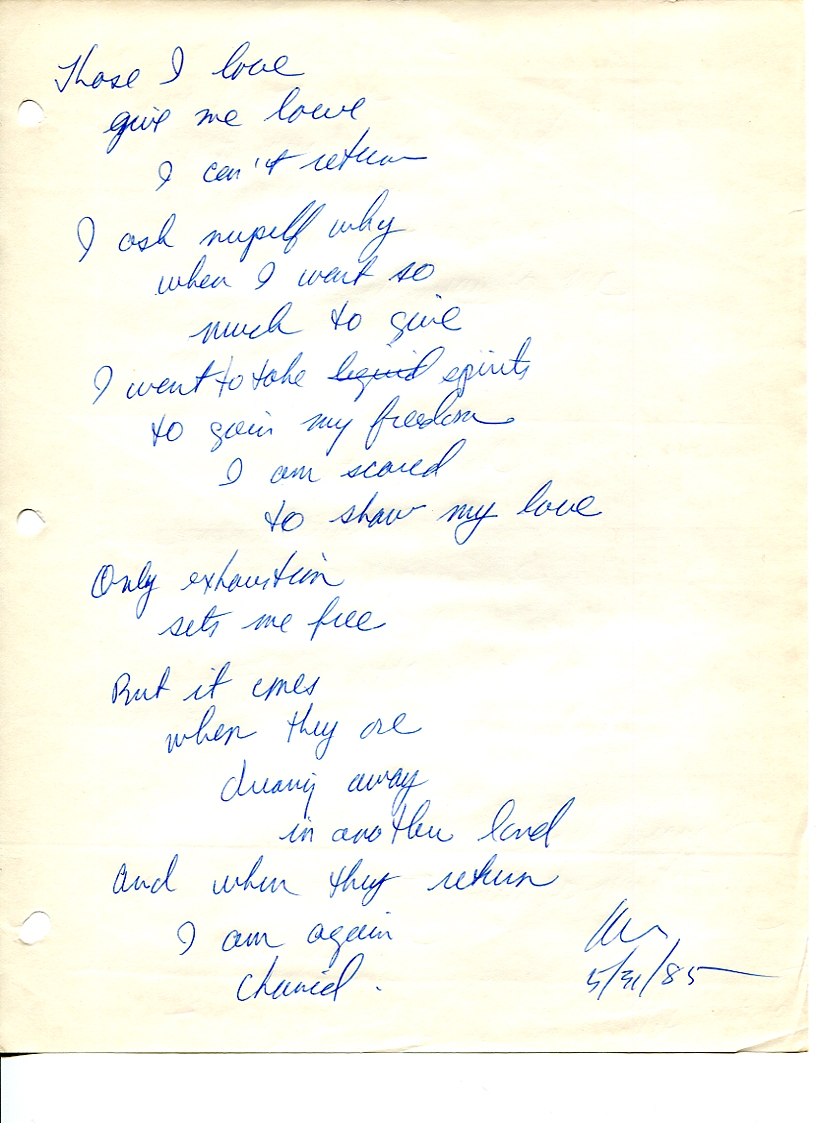 Those I love
give me love
I can't return
I ask myself why
when I want so
much to give
I want to take liquid spirits
to gain my freedom
I am scared
to show my love
Only exhaustion
sets me free
But it comes
when they are
away
in another land
And when they return
I am again
chained.
5/31/85